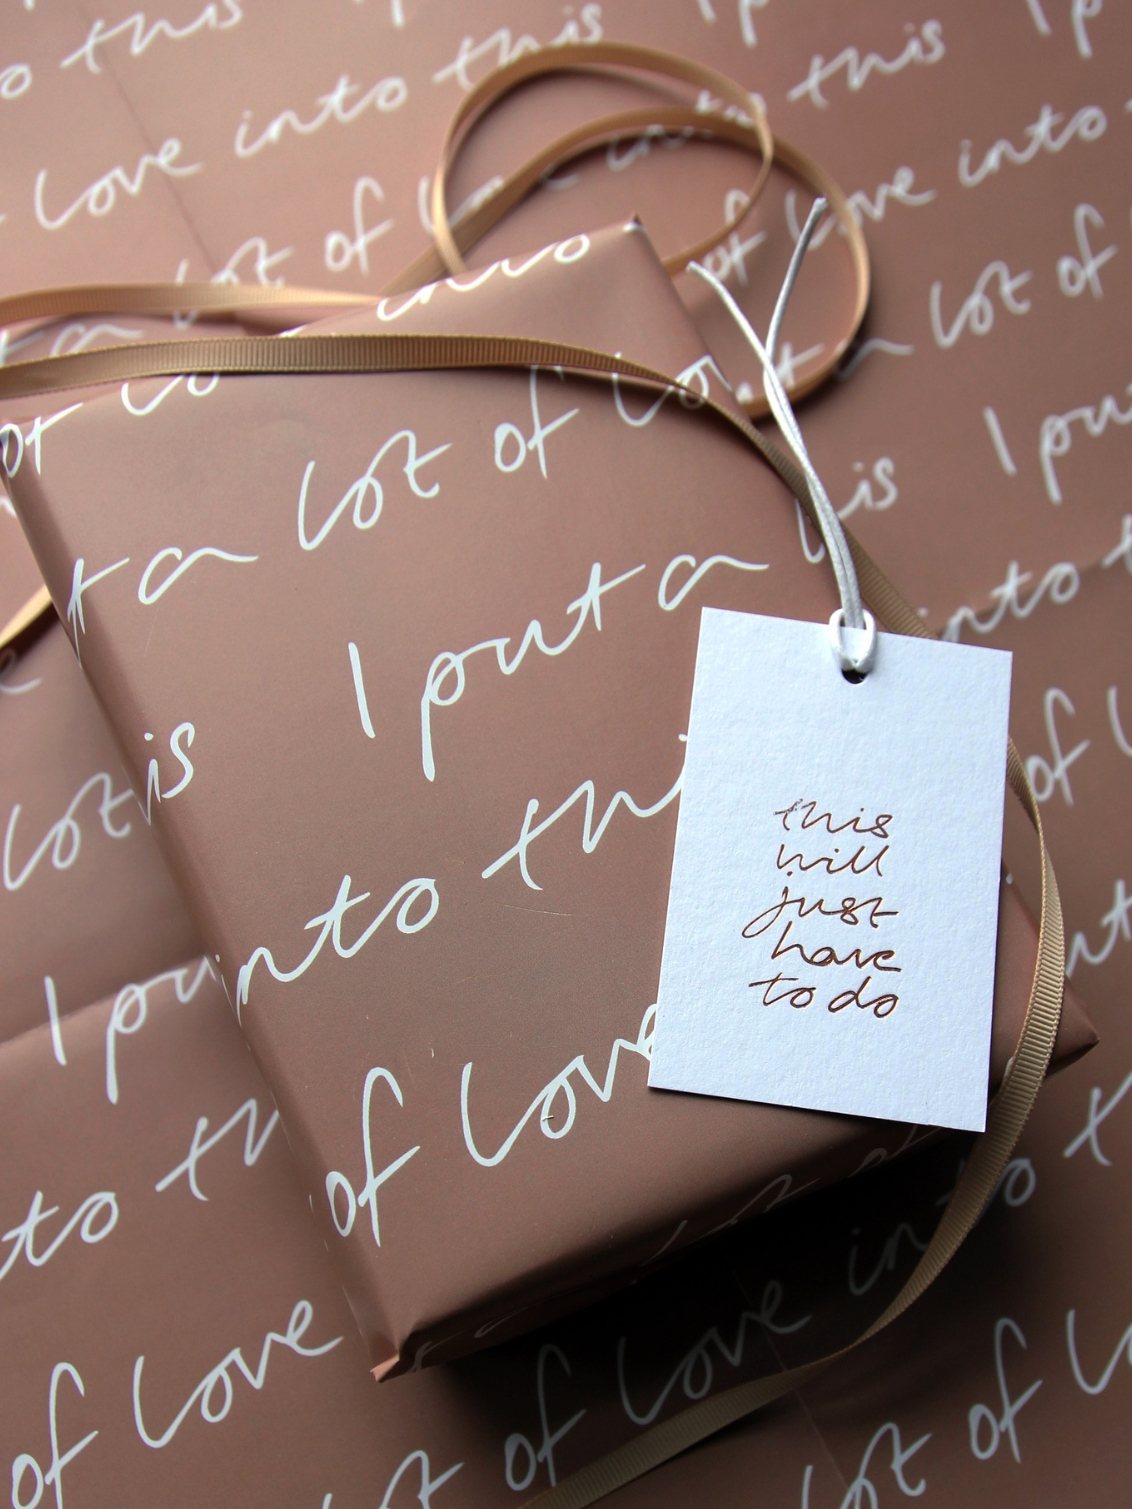 to this
love into this
this
love into
a lot of
of love into
lot of
a lot of lo
ta lot of lo
I put a
is
I pu
into thi
of love
this
will
just
have
to do
his
I pu
into t
of l
lot
I pu
to th
of love
into t
lot of love
lot of lo